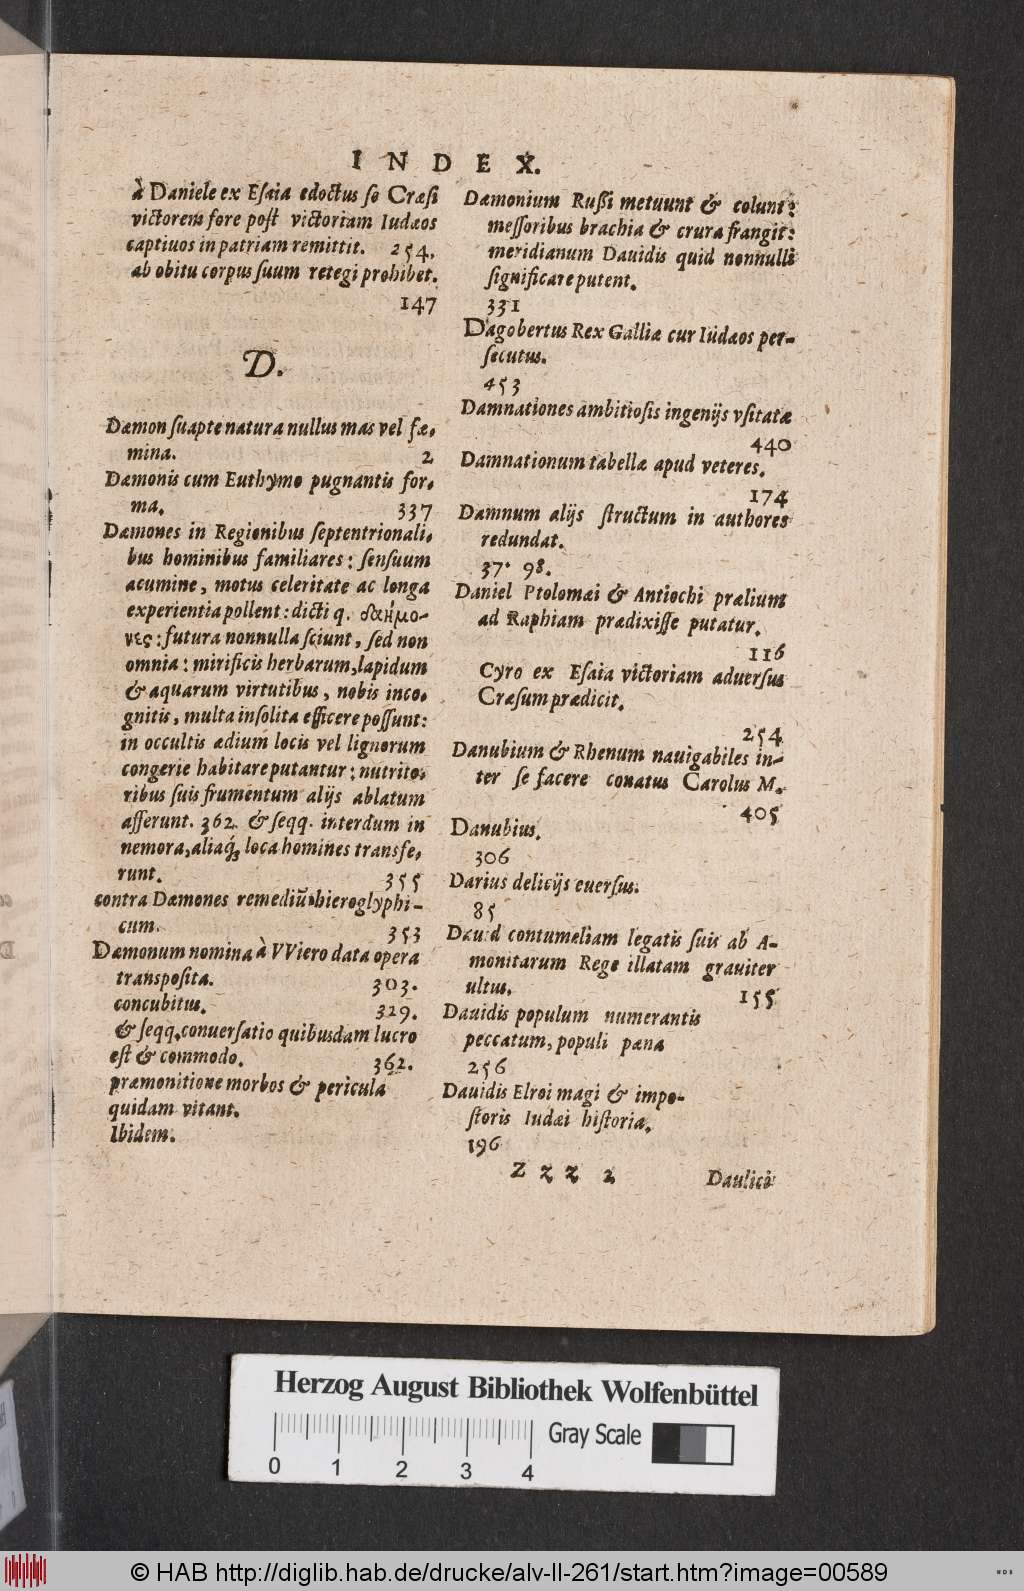 INDEX.
à Daniele ex Esaia edoctus se Cræsi
victorem fore post victoriam Iudæos
captiuos in patriam remittit. 254.
ab obitu corpus suum retegi prohibet.
147
D.
Dæmon suapte natura nullus mas vel fæ-
mina. 2
Dæmonis cum Euthymo pugnantis for-
ma. 337
Dæmones in Regionibus septentrionali-
bus hominibus familiares: sensuum
acumine, motus celeritate ac longa
experientia pollent: dicti q. δαήμο-
νες: futura nonnulla sciunt, sed non
omnia: mirificis herbarum, lapidum
& aquarum virtutibus, nobis inco-
gnitis, multa insolita efficere possunt:
in occultis ædium locis vel lignorum
congerie habitare putantur: nutrito-
ribus suis frumentum alijs ablatum
afferunt. 362. & seqq. interdum in
nemora, aliaq́; loca homines transfe-
runt. 355
contra Dæmones remediũ hieroglyphi-
cum. 353
Dæmonum nomina à VViero data opera
transposita. 303.
concubitus. 329.
& seqq. conuersatio quibusdam lucro
est & commodo. 362.
præmonitione morbos & pericula
quidam vitant.
Ibidem.
Dæmonium Russi metuunt & colunt:
messoribus brachia & crura frangit:
meridianum Dauidis quid nonnulli
significare putent.
331
Dagobertus Rex Galliæ cur Iudæos per-
secutus.
453
Damnationes ambitiosis ingenijs vsitatæ
440
Damnationum tabellæ apud veteres.
174
Damnum alijs structum in authores
redundat.
37. 98.
Daniel Ptolomæi & Antiochi prælium
ad Raphiam prædixisse putatur.
116
Cyro ex Esaia victoriam aduersus
Cræsum prædicit.
254
Danubium & Rhenum nauigabiles in-
ter se facere conatus Carolus M.
405
Danubius.
306
Darius delicijs euersus.
85
Dauid contumeliam legatis suis ab A-
monitarum Rege illatam grauiter
ultus. 155
Dauidis populum numerantis
peccatum, populi pæna
256
Dauidis Elroi magi & impo-
storis Iudæi historia.
196
Zzz 2 Daulici
Herzog August Bibliothek Wolfenbüttel
Gray Scale
0 1 2 3 4
© HAB http://diglib.hab.de/drucke/alv-ll-261/start.htm?image=00589